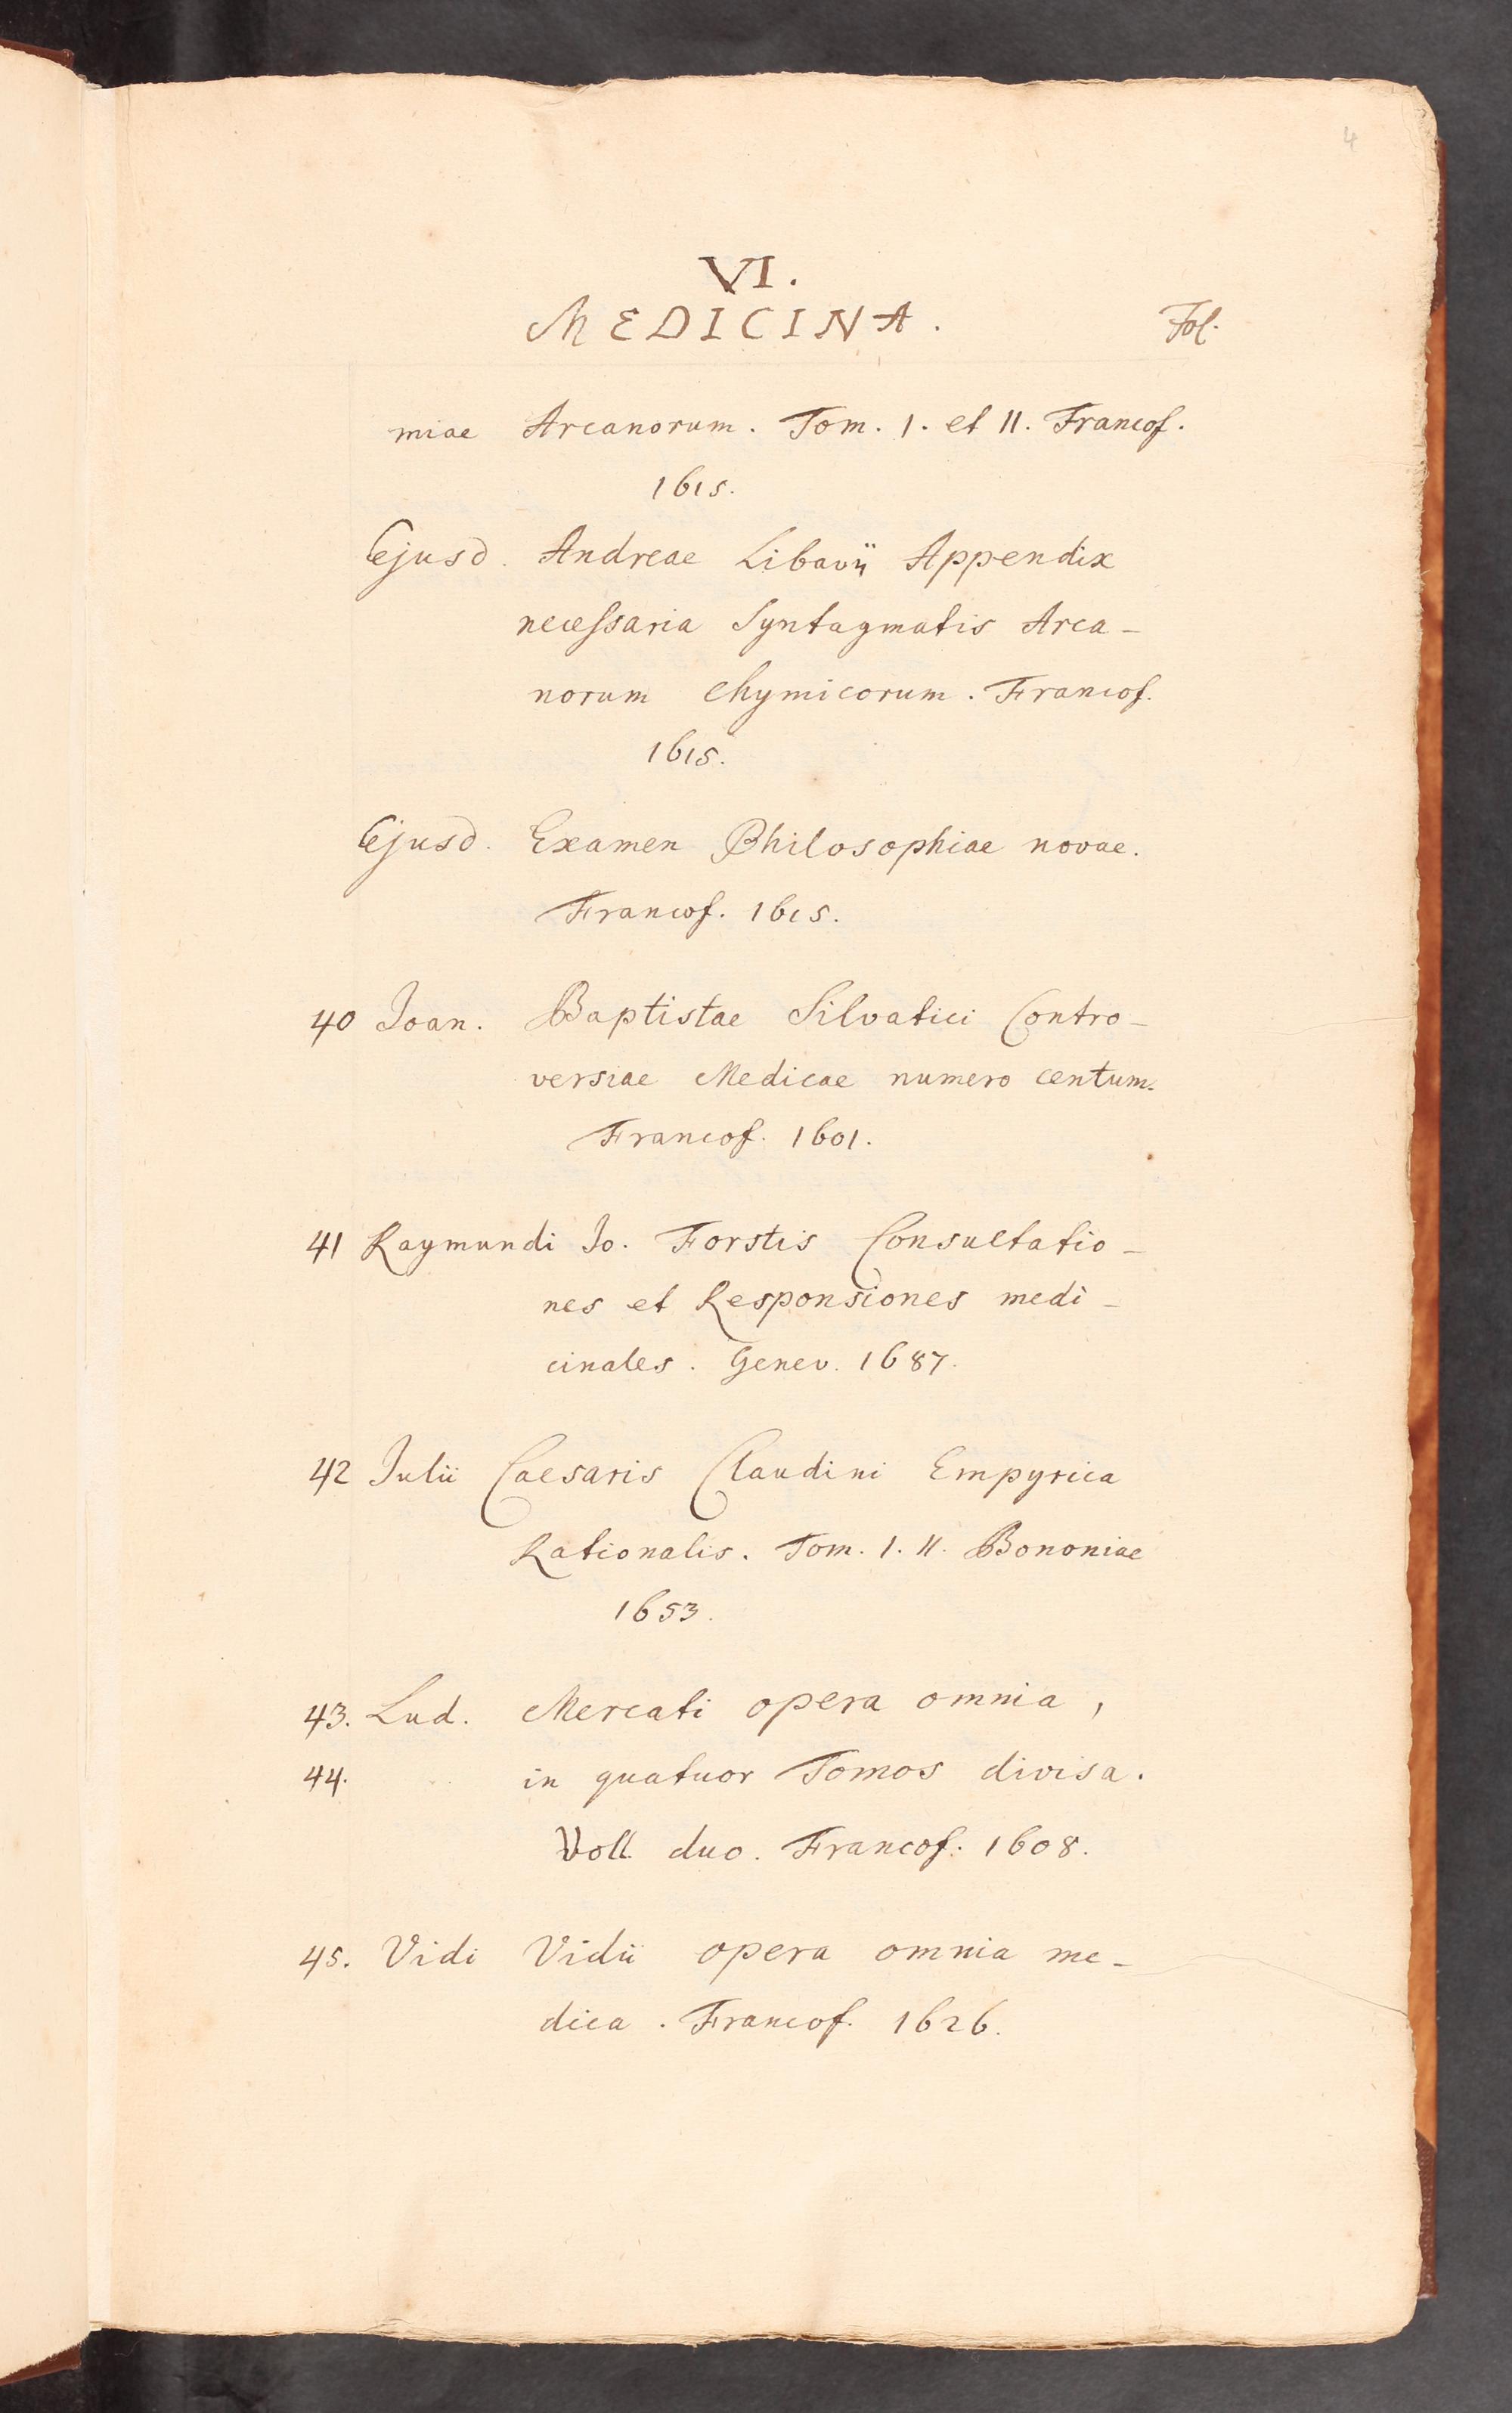 4
VI.
MEDICINA. Fol.
miae Arcanorum. Tom. I. et II. Francof.
1615.
Ejusd. Andreae Libavii Appendix
necessaria Syntagmatis Arca-
norum chymicorum. Francof.
1615.
Ejusd. Examen Philosophiae novae.
Francof. 1615.
40 Joan. Baptistae Silvatici Contro-
versiae Medicae numero centum.
Francof. 1601.
41 Raymundi Jo. Forstis Consultatio-
nes et Responsiones medi-
cinales. Genev. 1687.
42 Julii Caesaris Claudini Empyrica
Rationalis. Tom. I. II. Bononiae
1653.
43. Lud. Mercati opera omnia,
44. in quatuor Tomos divisa.
Voll duo. Francof. 1608.
45. Vidi Vidii opera omnia me-
dica. Francof. 1626.